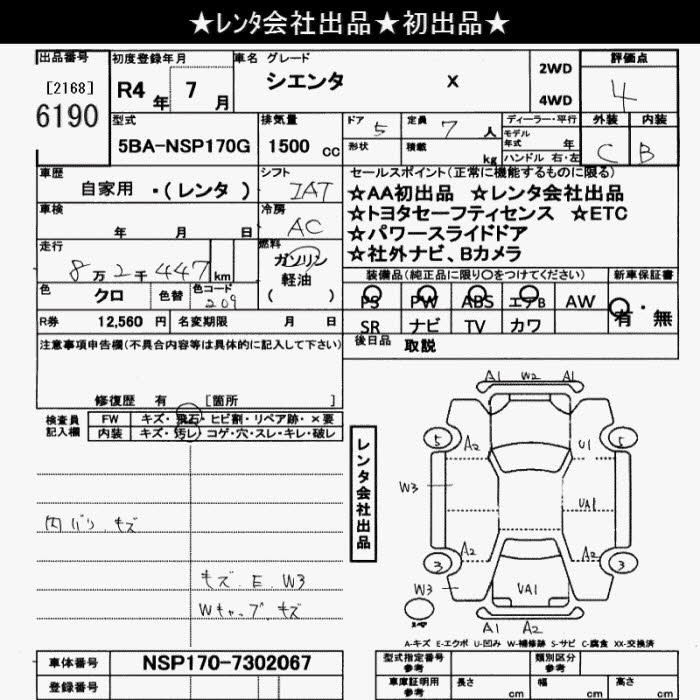 ★レンタ会社出品★初出品★
出品番号 初度登録年月 車名 グレード 評価点
[2168] R4年 7月 シエンタ X 2WD 4
6190 4WD
型式 排気量 ドア 定員 ディーラー・平行 外装 内装
5BA-NSP170G 1500 cc 5 7 人 モデル年式 年 C B
形状 積載 kg ハンドル 右・左
車歴 シフト セールスポイント(正常に機能するものに限る)
自家用 ・(レンタ) IAT ☆AA初出品 ☆レンタ会社出品
車検 冷房 ☆トヨタセーフティセンス ☆ETC
年 月 日 AC ☆パワースライドドア
走行 燃料 ☆社外ナビ、Bカメラ
8万2千447km ガソリン
軽油
( )
装備品(純正品に限り○をつけてください) 新車保証書
色 クロ 色替 色コード 209 PS PW ABS エアB AW 有・無
R券 12,560 円 名変期限 月 日 SR ナビ TV カワ
注意事項申告欄(不具合内容等は具体的に記入して下さい) 後日品 取説
修復歴 有 [箇所 ]
検査員記入欄 FW キズ・飛石・ヒビ割・リペア跡・×要
内装 キズ・汚レ・コゲ・穴・スレ・キレ・破レ
内バリ キズ
キズ E W3
Wキャップ キズ
レンタ会社出品
A1 W2 A1
5 A2 U1 5
W3 UA1
A2 A2
3 3
W3 UA1
A1 A2
A-キズ E-エクボ U-凹み W-補修跡 S-サビ C-腐食 XX-交換済
車体番号 NSP170-7302067 型式指定番号 参考 類別区分 参考
登録番号 車庫証明用 参考 長さ cm 幅 cm 高さ cm